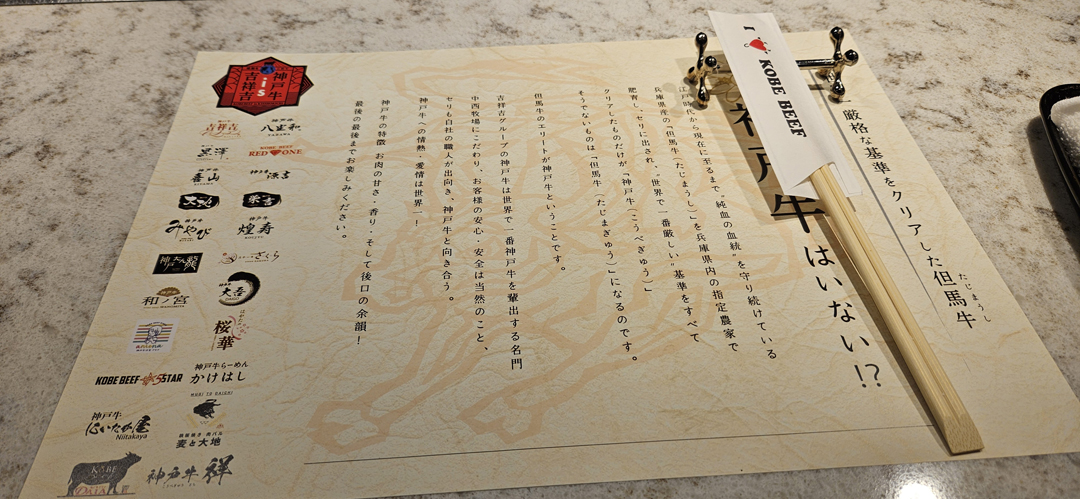 I ♥ KOBE BEEF
厳格な基準をクリアした但馬牛
たじまうし
神戸牛はいない!?
江戸時代から現在に至るまで“純血の血統”を守り続けている
兵庫県産の「但馬牛（たじまうし）」を兵庫県内の指定農家で
肥育し、セリに出され、“世界で一番厳しい”基準をすべて
クリアしたものだけが「神戸牛（こうべぎゅう）」
そうでないものは「但馬牛（たじまぎゅう）」になるのです。
但馬牛のエリートが神戸牛ということです。
吉祥吉グループの神戸牛は世界で一番神戸牛を輩出する名門
中西牧場にこだわり、お客様の安心・安全は当然のこと、
セリも自社の職人が出向き、神戸牛と向き合う。
神戸牛への情熱・愛情は世界一！
神戸牛の特徴 お肉の甘さ・香り・そして後口の余韻！
最後の最後までお楽しみください。
神戸牛
is
吉祥吉
吉祥吉
八坐和
黒澤
KOBE BEEF
RED♥ONE
喜山
神戸牛
みやび
神戸牛
煌寿
ステーキ
さくら
神戸たん龍
大吾
和ノ宮
桜華
KOBE BEEF 5STAR
神戸牛らーめん
かけはし
神戸牛
にいなか屋
Niitakaya
MUGI TO DAICHI
麦と大地
KOBE
神戸牛 祥